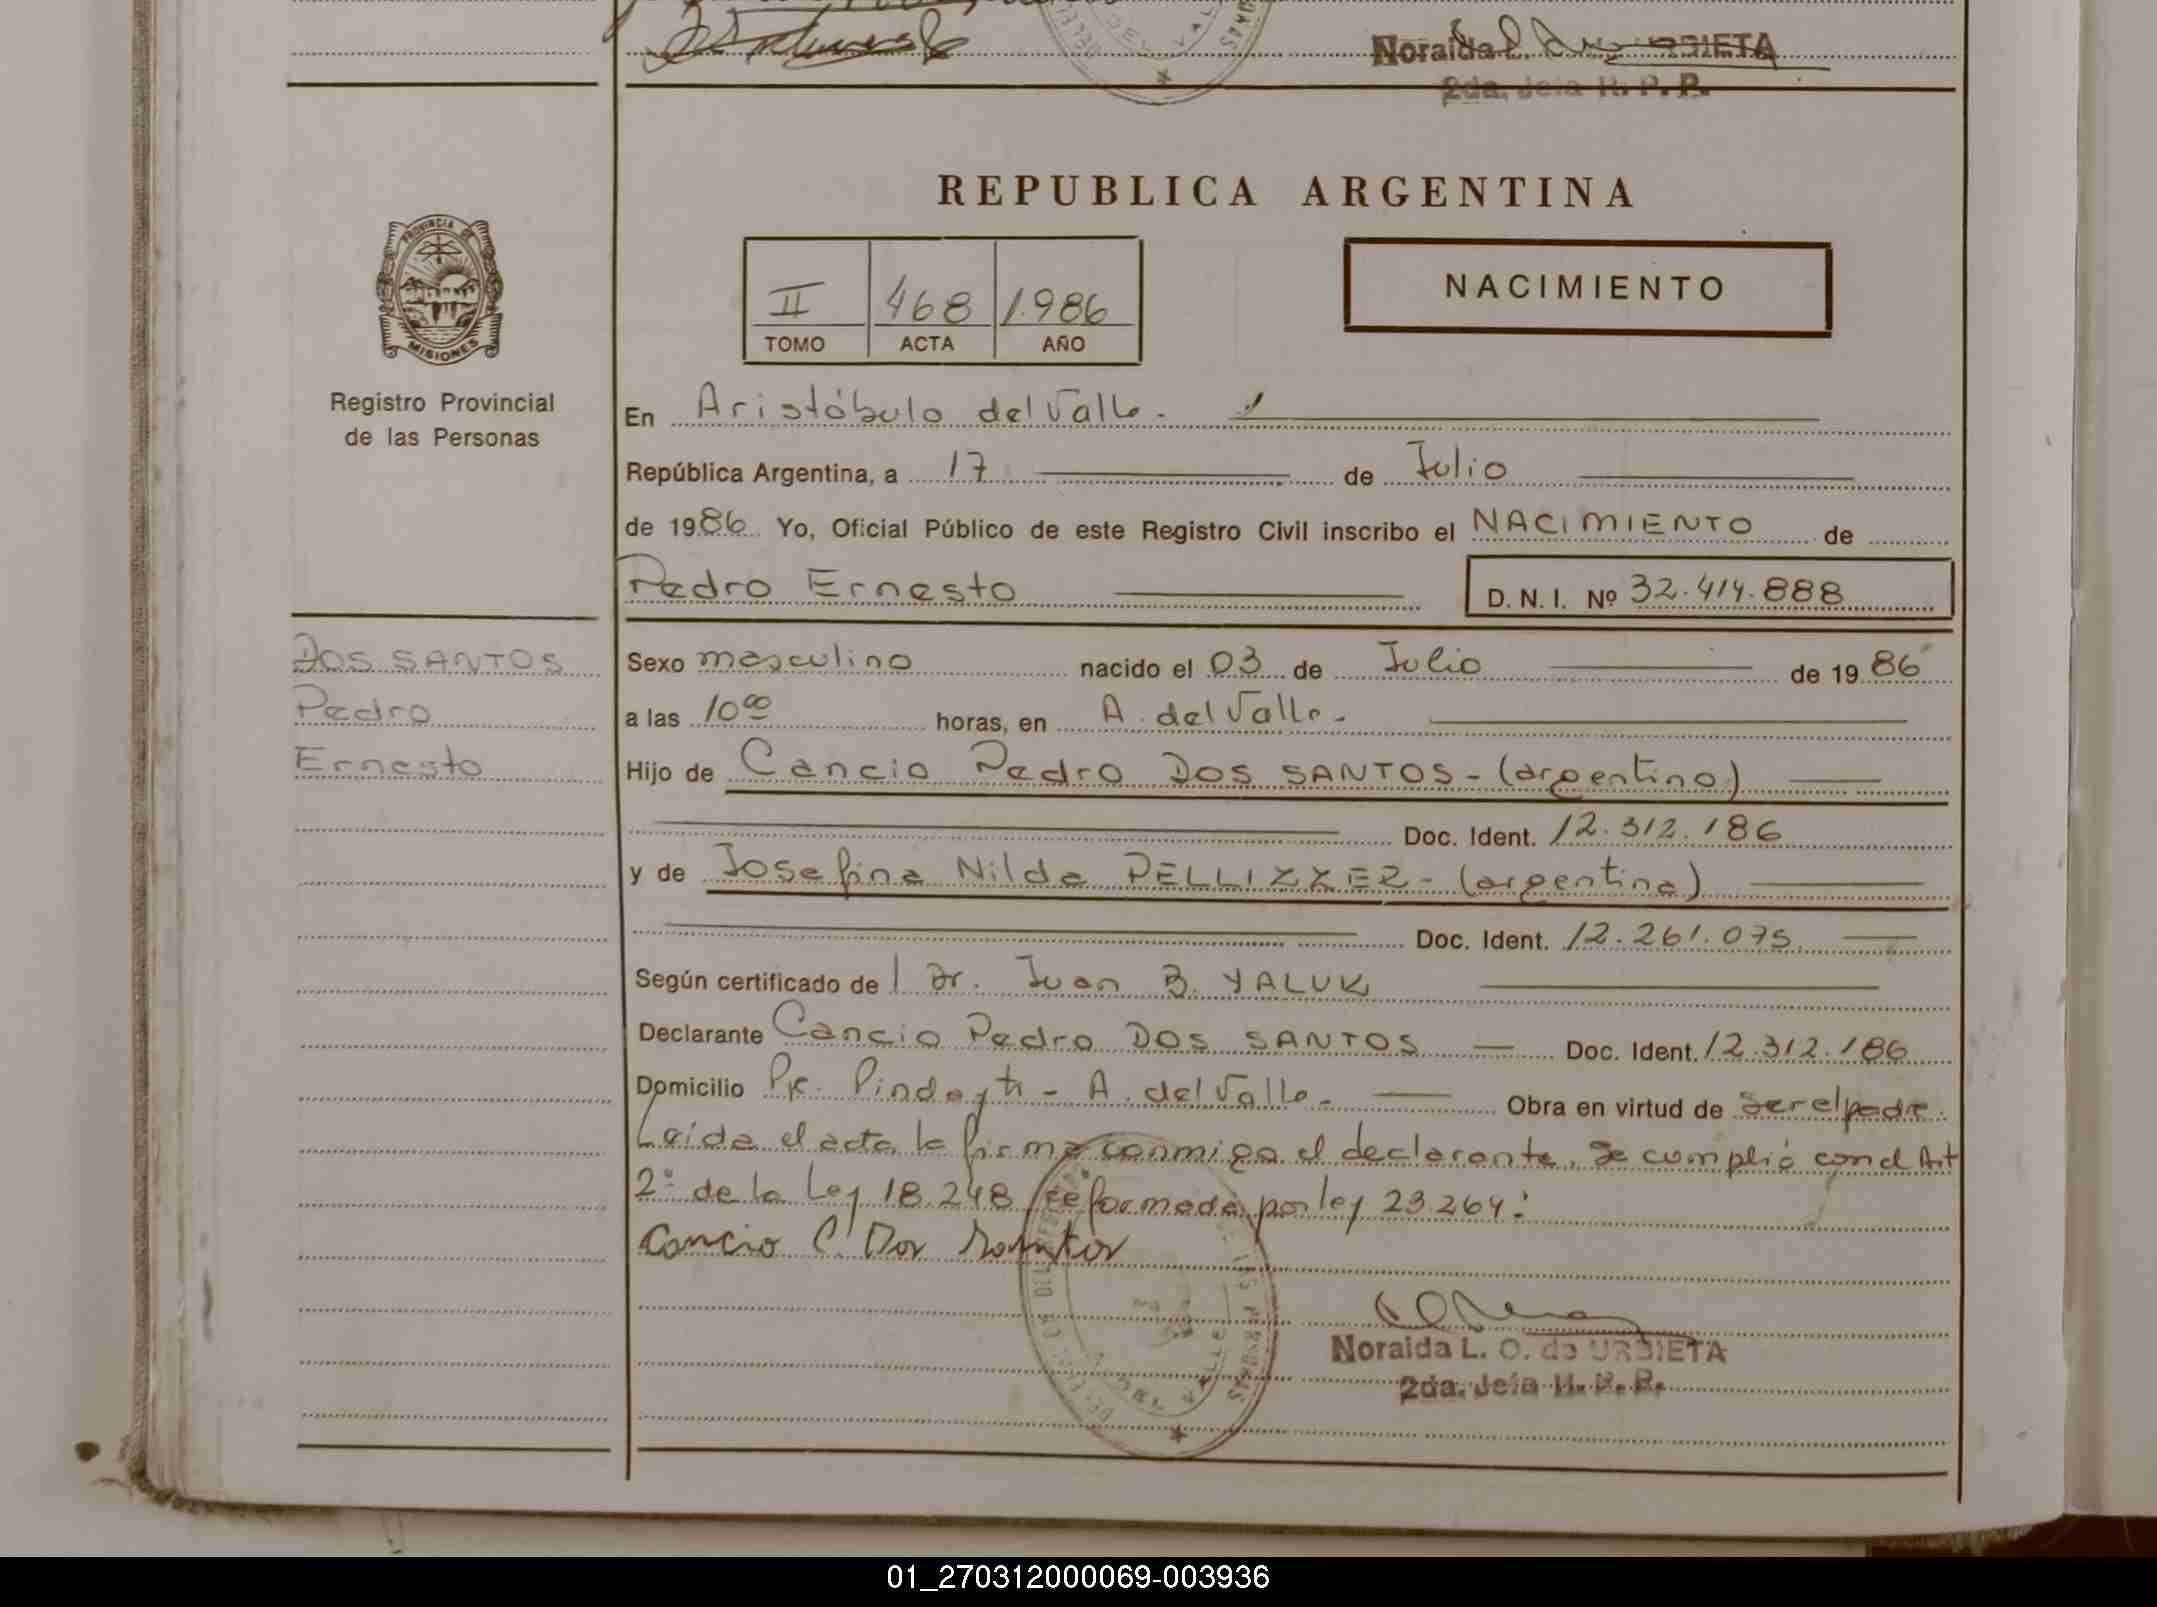 Noraida L. URBIETA
2da. Jefa R. P. P.
REPUBLICA ARGENTINA
PROVINCIA DE
MISIONES
Registro Provincial
de las Personas
II 468 1.986
TOMO ACTA AÑO
NACIMIENTO
En Aristóbulo del Valle.-
República Argentina, a 17 de Julio
de 1986 Yo, Oficial Público de este Registro Civil inscribo el NACIMIENTO de
Pedro Ernesto D. N. I. Nº 32.414.888
DOS SANTOS
Pedro
Ernesto
Sexo masculino nacido el 03 de Julio de 19 86
a las 10⁰⁰ horas, en A. del Valle.-
Hijo de Cancio Pedro DOS SANTOS - (argentino)
Doc. Ident. 12.312.186
y de Josefina Nilda PELLIZZER - (argentina)
Doc. Ident. 12.261.075
Según certificado de l Dr. Juan B. YALUK
Declarante Cancio Pedro DOS SANTOS — Doc. Ident. 12.312.186
Domicilio Pje. Pindayti - A. del Valle.- Obra en virtud de ser el padre.
Leída el acta la firma conmigo el declarante. Se cumplió con el Art
2° de la Ley 18.248 reformada por ley 23.264:
Cancio P. Dos Santos
Noraida L. O. de URBIETA
2da. Jefa R. P. P.
01_270312000069-003936